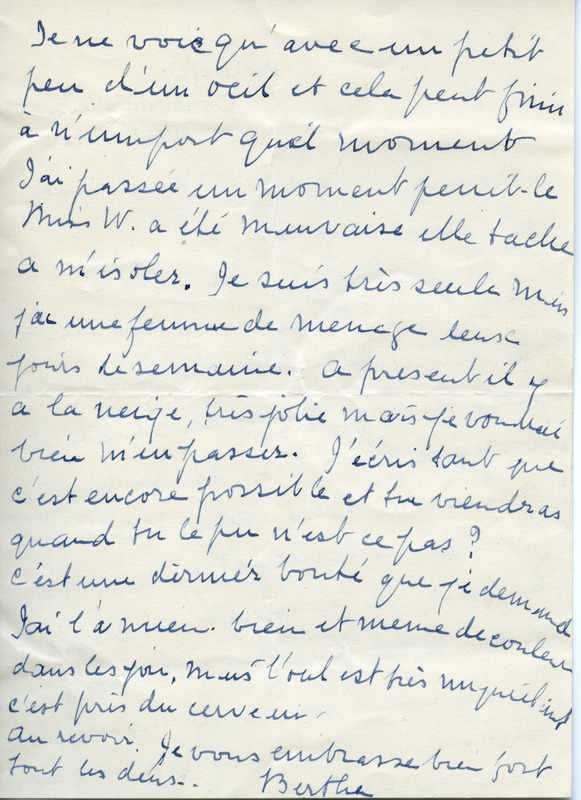 Je ne vois qu'avec un petit
peu d'un oeil et cela peut finir
à n'import quel moment
J'ai passée un moment penible
Miss W. a été mauvaise elle tache
a m'isoler. Je suis très seule mais
j'ai une femme de menage deux
jours de semaine. a present il y
a la neige, très jolie mais je voudrai
bien m'en passer. J'écris tant que
c'est encore possible et tu viendras
quand tu le pu n'est ce pas?
c'est une dernièr bonté que je demand
J'ai l'a bien et meme de couleur
dans les jou, mais l'oeil est très inquiétant
c'est près du cerveau
au revoir. Je vous embrasse bien fort
tout les deux. Berthe